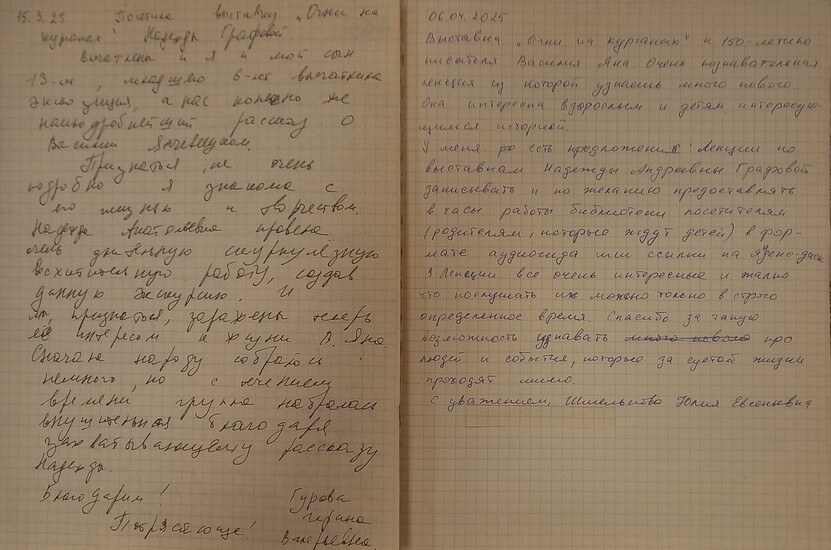 15.3.25 Посетила выставку „Огни на
курганах" Надежды Графовой
Впечатлены и я и мой сын
13-и, младшего 6-лет впечатлила
экспозиция, а нас конечно же
наиподробнейший рассказ о
Василии Янчевецком.
Признаться, не очень
подробно я знакома с
его жизнью и творчеством.
Надежда Анатольевна провела
очень длительную скурпулёзную
восхитительную работу, создав
данную экскурсию. И
мы, признаться, заражены теперь
её интересом к жизни В. Яна.
Сначала народу собралось
немного, но с течением
времени группа набралась
внушительная благодаря
захватывающему рассказу
Надежды.
Благодарим! Гурова
Потрясающе! Ирина
Валерьевна.
06.04.2025
Выставка „Огни на курганах" к 150-летию
писателя Василия Яна. Очень познавательная
лекция из которой узнаешь много нового.
Она интересна взрослым и детям, интересую-
щимся историей.
У меня есть предложение: Лекции по
выставкам Надежды Андреевны Графовой
записывать и по желанию предоставлять
в часы работы библиотеки посетителям
(родителям, которые ждут детей) в фор-
мате аудиогида или ссылки на Яндекс-диск
Лекции все очень интересные и жалко
что послушать их можно только в строго
определенное время. Спасибо за такую
возможность узнавать много нового про
людей и события, которые за суетой жизни
проходят мимо.
С уважением, Юлия Евгеньевна